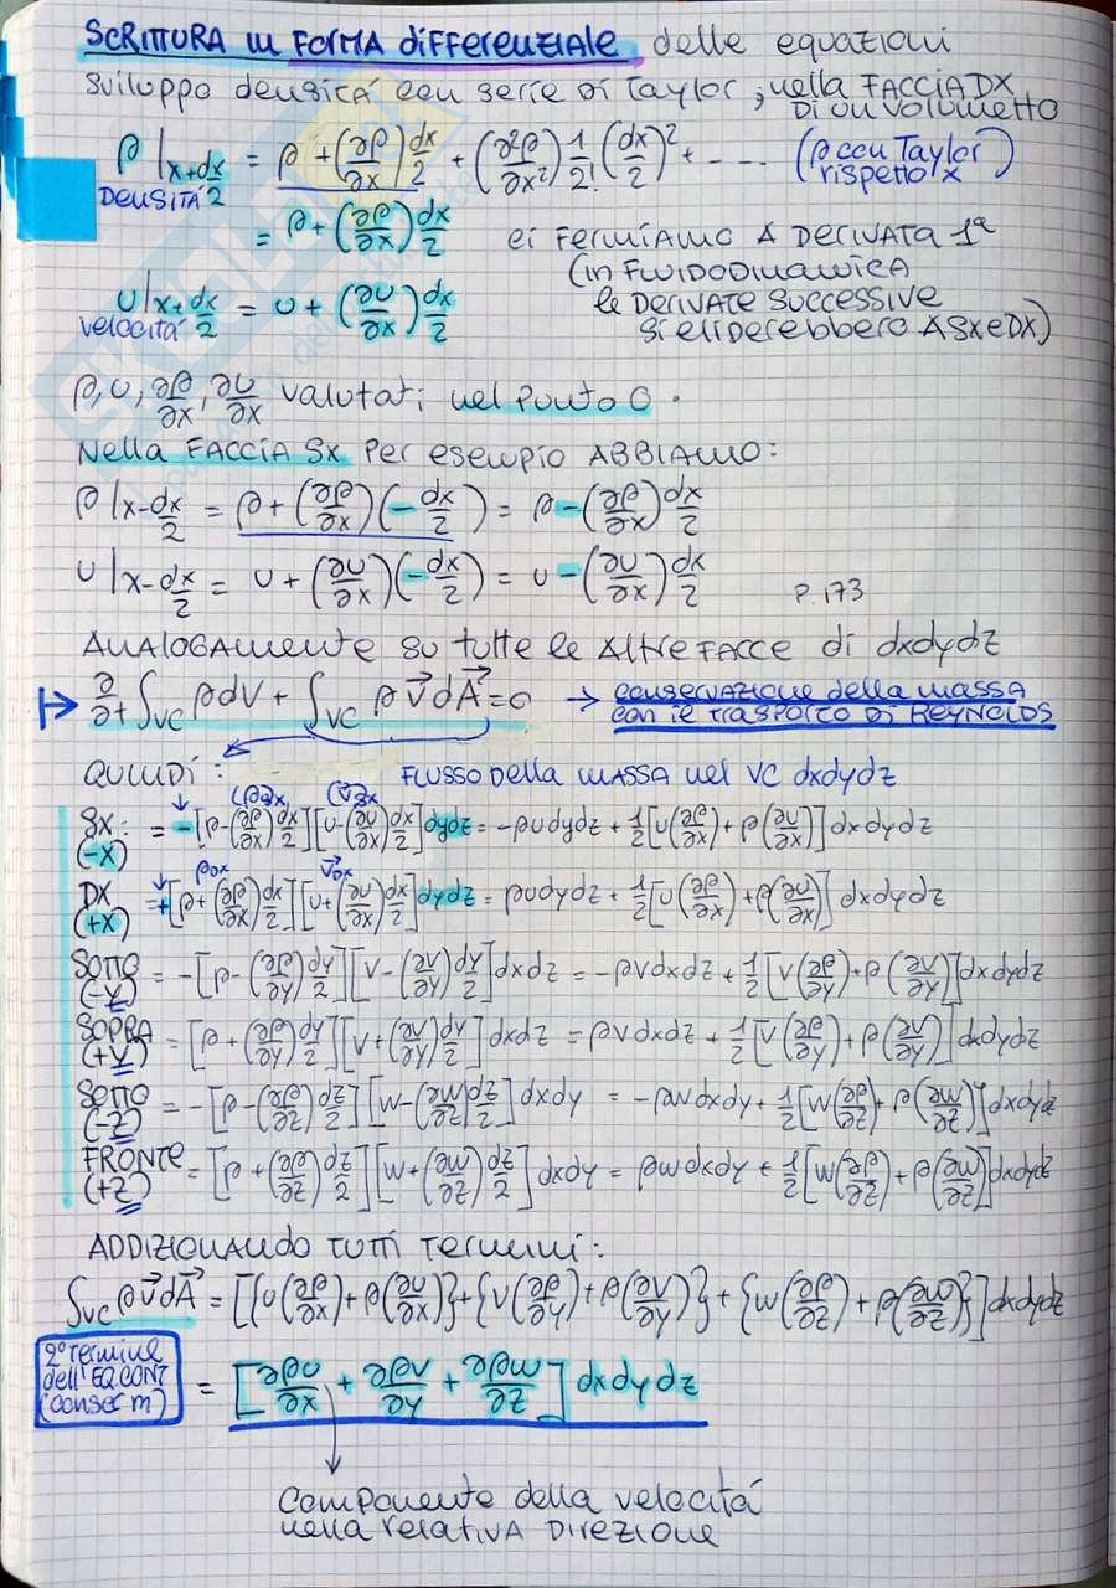 SCRITTURA in FORMA differenziale delle equazioni
sviluppo densità con serie di Taylor, nella FACCIA DX
DI UN VOLUMETTO
ρ|x+dx/2 = ρ + (∂ρ/∂x) dx/2 + (∂²ρ/∂x²) 1/2! (dx/2)² + ---- (ρ con Taylor rispetto x)
DENSITÀ
= ρ + (∂ρ/∂x) dx/2 ci FERMIAMO A DERIVATA 1ª
(in FLUIDODINAMICA
u|x+dx/2 = u + (∂u/∂x) dx/2 le DERIVATE SUCCESSIVE
velocità si eliderebbero A SX e DX)
ρ, u, ∂ρ/∂x, ∂u/∂x valutati nel punto O.
Nella FACCIA SX per esempio ABBIAMO:
ρ|x-dx/2 = ρ + (∂ρ/∂x)(-dx/2) = ρ - (∂ρ/∂x) dx/2
u|x-dx/2 = u + (∂u/∂x)(-dx/2) = u - (∂u/∂x) dx/2 P.173
ANALOGAmente su tutte le Altre FACCE di dxdydz
↦ ∂/∂t ∫VC ρdV + ∫VC ρ v⃗ dA⃗ = 0 → conservazione della massa
con il TRASPORTO DI REYNOLDS
QUINDI: FLUSSO DELLA MASSA nel VC dxdydz
SX: (-x) = -[ρ-(∂ρ/∂x) dx/2][u-(∂u/∂x) dx/2] dydz = -ρudydz + 1/2[u(∂ρ/∂x) + ρ(∂u/∂x)] dxdydz
ρDX v⃗DX
DX (+x) = +[ρ+(∂ρ/∂x) dx/2][u+(∂u/∂x) dx/2] dydz = ρudydz + 1/2[u(∂ρ/∂x) + ρ(∂u/∂x)] dxdydz
SOTTO (-y) = -[ρ-(∂ρ/∂y) dy/2][v-(∂v/∂y) dy/2] dxdz = -ρvdxdz + 1/2[v(∂ρ/∂y) + ρ(∂v/∂y)] dxdydz
SOPRA (+y) = [ρ+(∂ρ/∂y) dy/2][v+(∂v/∂y) dy/2] dxdz = ρvdxdz + 1/2[v(∂ρ/∂y) + ρ(∂v/∂y)] dxdydz
SOTTO (-z) = -[ρ-(∂ρ/∂z) dz/2][w-(∂w/∂z) dz/2] dxdy = -ρwdxdy + 1/2[w(∂ρ/∂z) + ρ(∂w/∂z)] dxdydz
FRONTE (+z) = [ρ+(∂ρ/∂z) dz/2][w+(∂w/∂z) dz/2] dxdy = ρwdxdy + 1/2[w(∂ρ/∂z) + ρ(∂w/∂z)] dxdydz
ADDIZIONANDO TUTTI TERMINI:
∫VC ρ v⃗ dA⃗ = [{u(∂ρ/∂x) + ρ(∂u/∂x)} + {v(∂ρ/∂y) + ρ(∂v/∂y)} + {w(∂ρ/∂z) + ρ(∂w/∂z)}] dxdydz
2° Termine
dell'EQ.CONT
(conser m)
= [∂ρu/∂x + ∂ρv/∂y + ∂ρw/∂z] dxdydz
Componente della velocità
nella relativA DIREZIONE